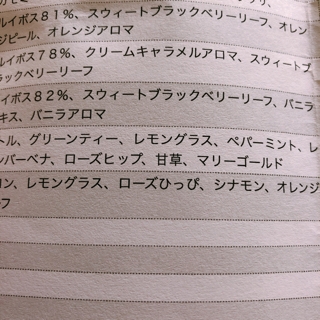 ルイボス81%、スウィートブラックベリーリーフ、オレン
ジピール、オレンジアロマ
ルイボス78%、クリームキャラメルアロマ、スウィートブ
ラックベリーリーフ
ルイボス82%、スウィートブラックベリーリーフ、バニラ
キス、バニラアロマ
トル、グリーンティー、レモングラス、ペパーミント、レ
ンバーベナ、ローズヒップ、甘草、マリーゴールド
レモングラス、ローズひっぷ、シナモン、オレンジ
ーフ